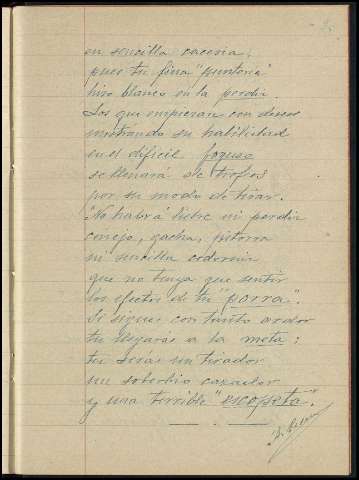 en sencilla cacería;
pues tu fina "puntería"
hizo blanco en la perdiz.
Los que empiezan con deseo
mostrando su habilidad
en el difícil
se llenará de trofeos
por su modo de tirar.
No habrá liebre ni perdiz
conejo, gacha, pitorra
ni sencilla codorniz
que no tenga que sentir
los efectos de tu "porra".
Si sigues con tanto ardor
tu llegarás a la meta;
tu serás un tirador
un soberbio cazador
y una terrible "escopeta".